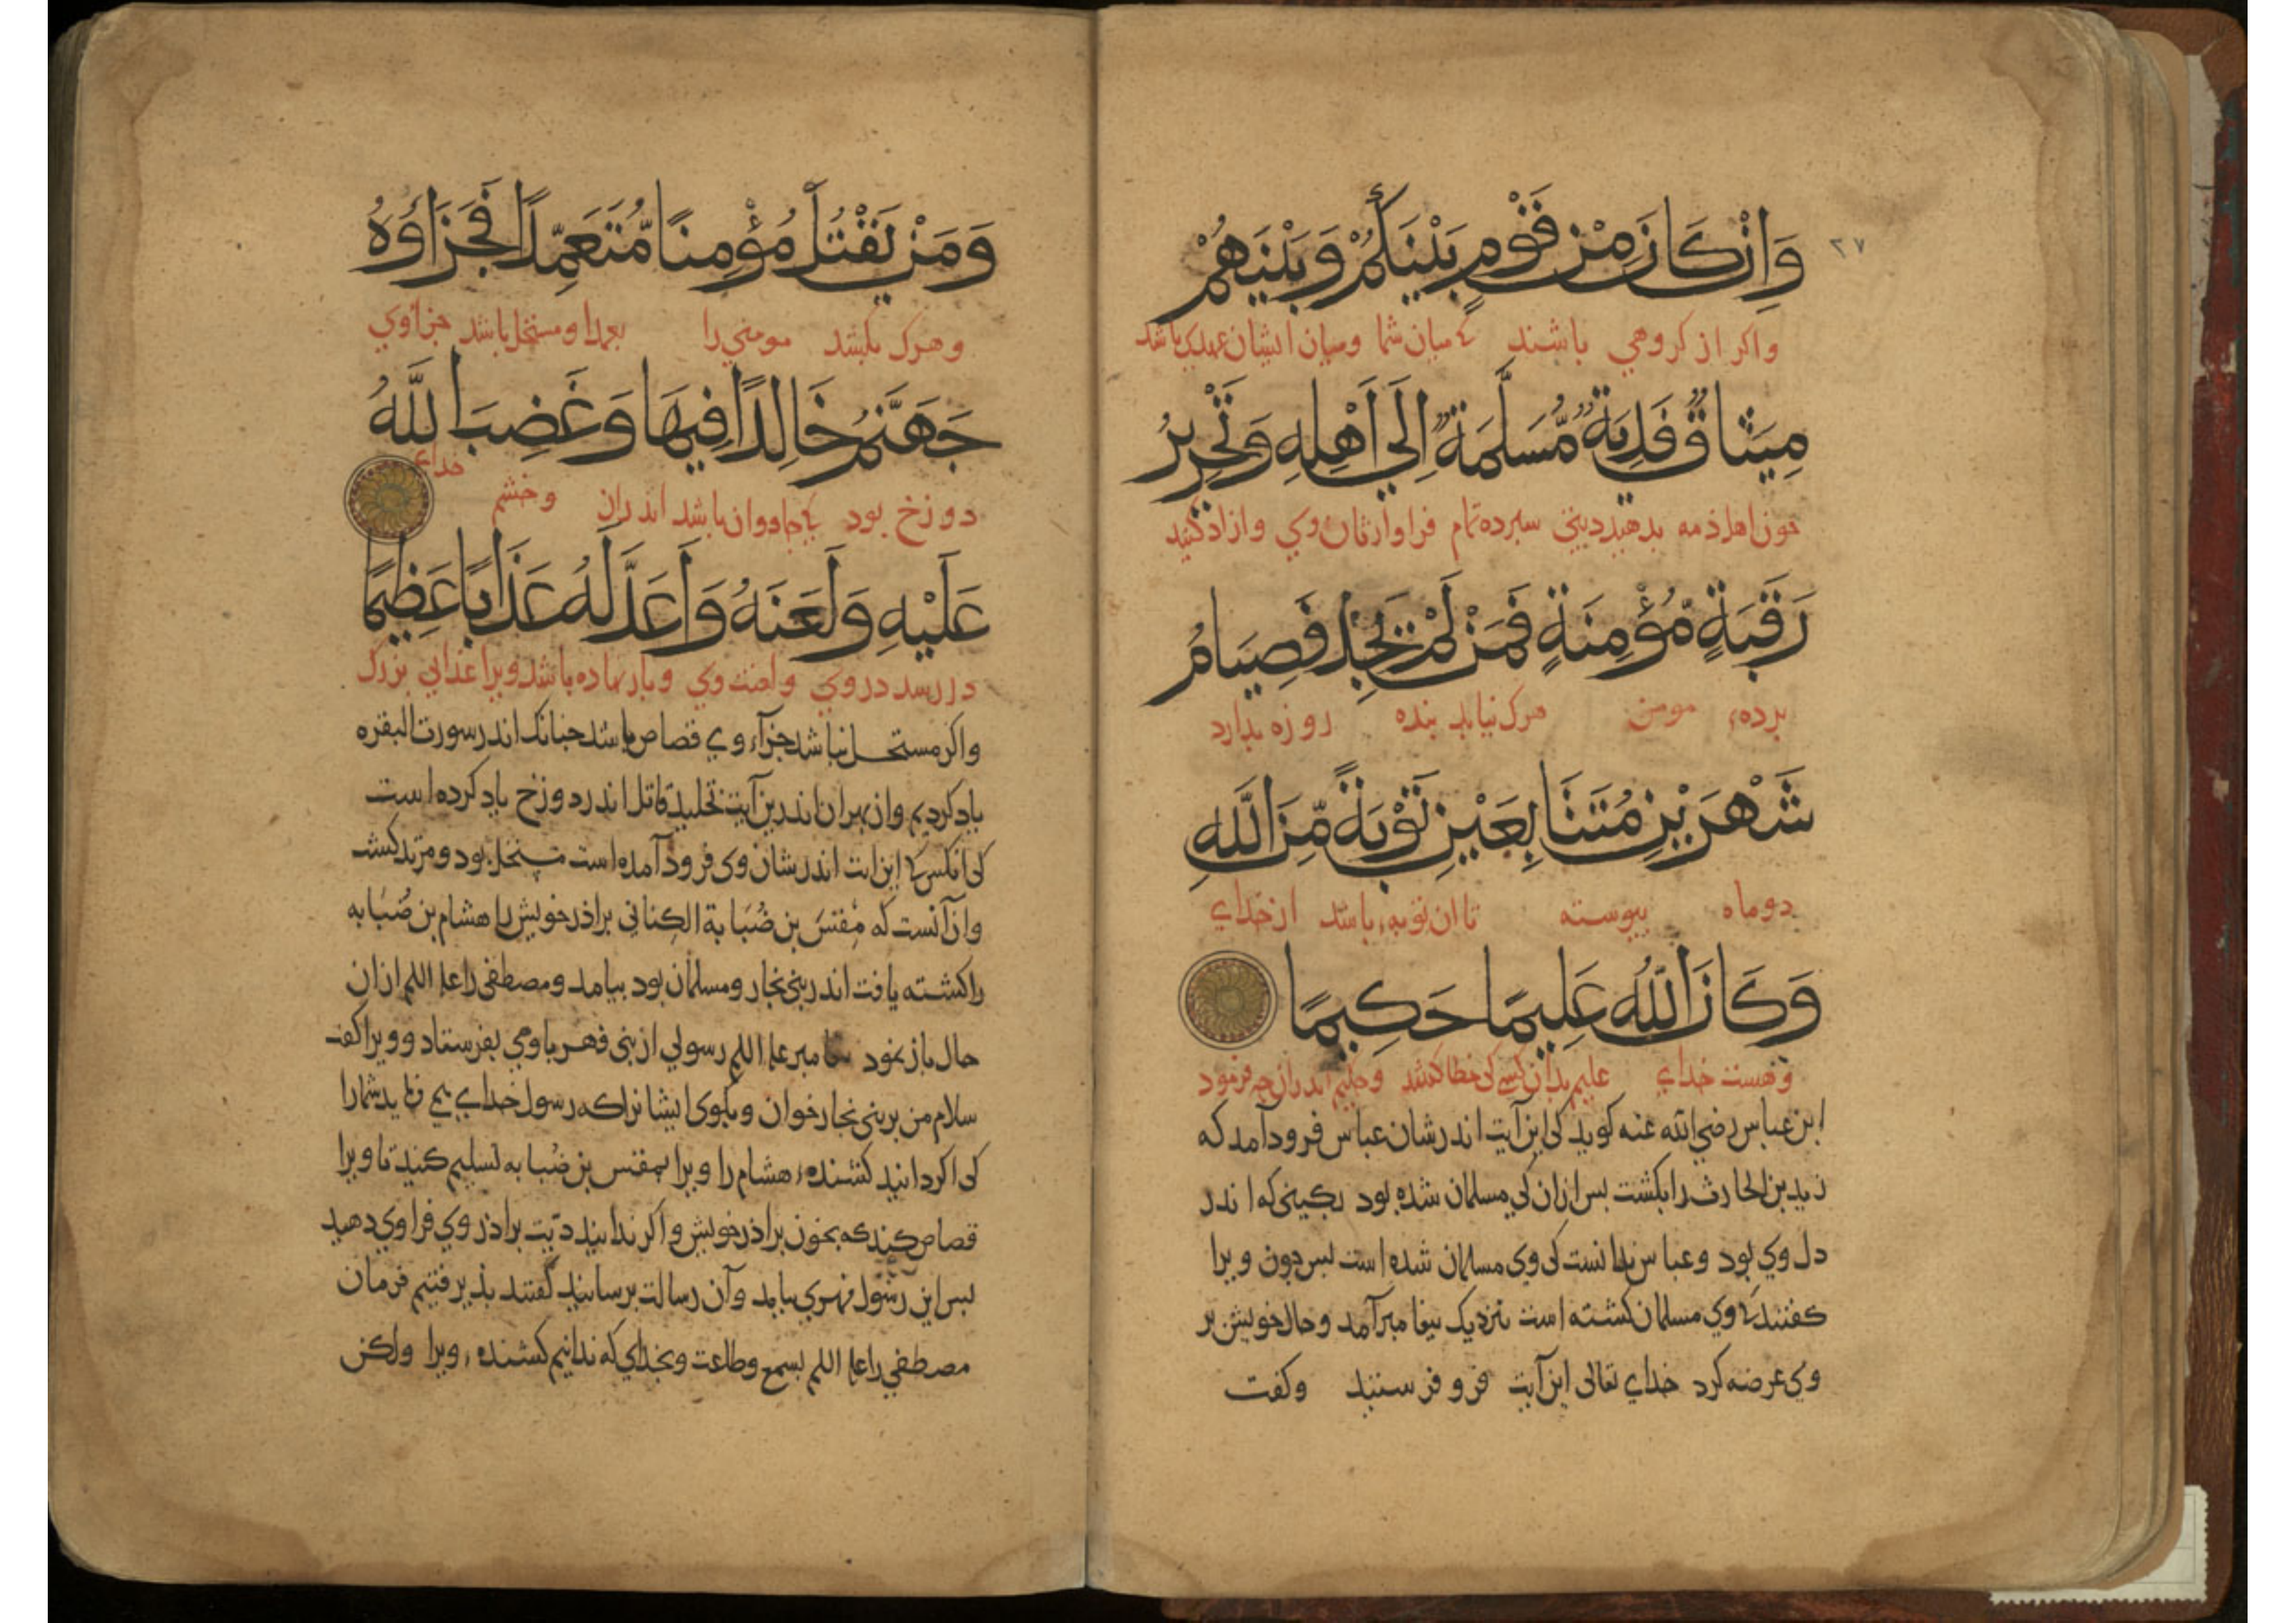 ٢٧
وَاِنْ كَانَ مِنْ قَوْمٍ بَيْنَكُمْ وَبَيْنَهُمْ
واكر از كروهي باشند كه ميان شما وميان ايشان عهدي باشد
مِيثَاقٌ فَدِيَةٌ مُّسَلَّمَةٌ اِلَى أَهْلِهِ وَتَحْرِيرُ
خون اهل ذمه بدهيد ديتى سبرده تمام فرا وارثان وي وازاد كنيد
رَقَبَةٍ مُّؤْمِنَةٍ فَمَنْ لَمْ يَجِدْ فَصِيَامُ
برده‌ء مومن هرك نيابد بنده روزه بدارد
شَهْرَيْنِ مُتَتَابِعَيْنِ تَوْبَةً مِّنَ اللهِ
دو ماه بيوسته تا ان توبه‌ء باشد از خداي
وَكَانَ اللهُ عَلِيمًا حَكِيمًا
وهست خداي عليم بدان كسى كى خطا كشد وحكيم اندران جه فرمود
ابن عباس رضي الله عنه كويد كى اين آيت اندر شان عباس فرود آمد كه
زيد بن الحارث را بكشت بس ازان كي مسلمان شده بود بكينى كه اندر
دل وي بود وعباس ندانست كى وى مسلمان شده است بس جون ويرا
كفتند كه وي مسلمان كشته است بنزديك بيغامبر آمد وحال خويش بر
وى عرضه كرد خداي تعالى اين آيت فرو فرستيد وكفت
وَمَنْ يَقْتُلْ مُؤْمِنًا مُّتَعَمِّدًا فَجَزَاؤُهُ
وهرك بكشد مومني را بعمدا ومستحل باشد جزاوي
جَهَنَّمُ خَالِدًا فِيهَا وَغَضِبَ اللهُ
دوزخ بود كه جاودان باشد اندران وخشم خداي
عَلَيْهِ وَلَعَنَهُ وَأَعَدَّ لَهُ عَذَابًا عَظِيمًا
در رسد در وي ولعنت وي وبازنهاده باشد ويرا عذابي بزرك
واكر مستحل نباشد جزآء وي قصاص باشد جنانك اندر سورت البقره
ياد كرديم وازبهر ان اندرين آيت تخليد قاتل اندر دوزخ ياد كرده است
كى انكس كه اين ايت اندر شان وى فرود آمده است مستحل بود ومرتد كشت
وآن آنست كه مِقتسَ بن ضُبَابة الكِناني براذر خويش را هشام بن ضُبَابه
را كشته يافت اندر بنى نجار ومسلمان بود بيامد ومصطفى را علم اللم ازان
حال باز نمود بيغامبر علم اللم رسولي از بنى فهر با وي بفرستاد وويرا كفت
سلام من بر بنى نجار خوان وبكوى ايشانرا كه رسول خداي مى فرمايد شما را
كى اكر دانيد كشنده‌ء هشام را ويرا بمقتس بن ضُبابه تسليم كنيد تا ويرا
قصاص كند كه بخون براذر خويش واكر ندانيد ديّت براذر وي فرا وي دهيد
بس اين رسُول فهري بيامد وآن رسالت برسانيد كفتند بذيرفتيم فرمان
مصطفي را علم اللم بسمع وطاعت وبخداي كه ندانيم كشنده‌ء ويرا ولكن